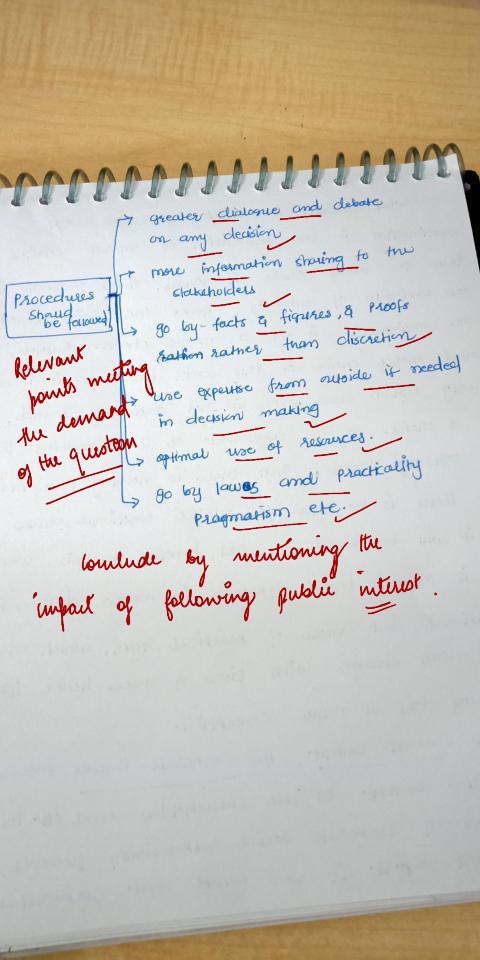 greater dialogue and debate
on any decision
more information sharing to the
stakeholders
Procedures
should
be followed
go by - facts & figures, & Proofs
rather than discretion
use expertise from outside if needed
in decision making
optimal use of resources.
go by laws and practicality
pragmatism etc.
Relevant
points meeting
the demand
of the question
Conclude by mentioning the
impact of following public interest.